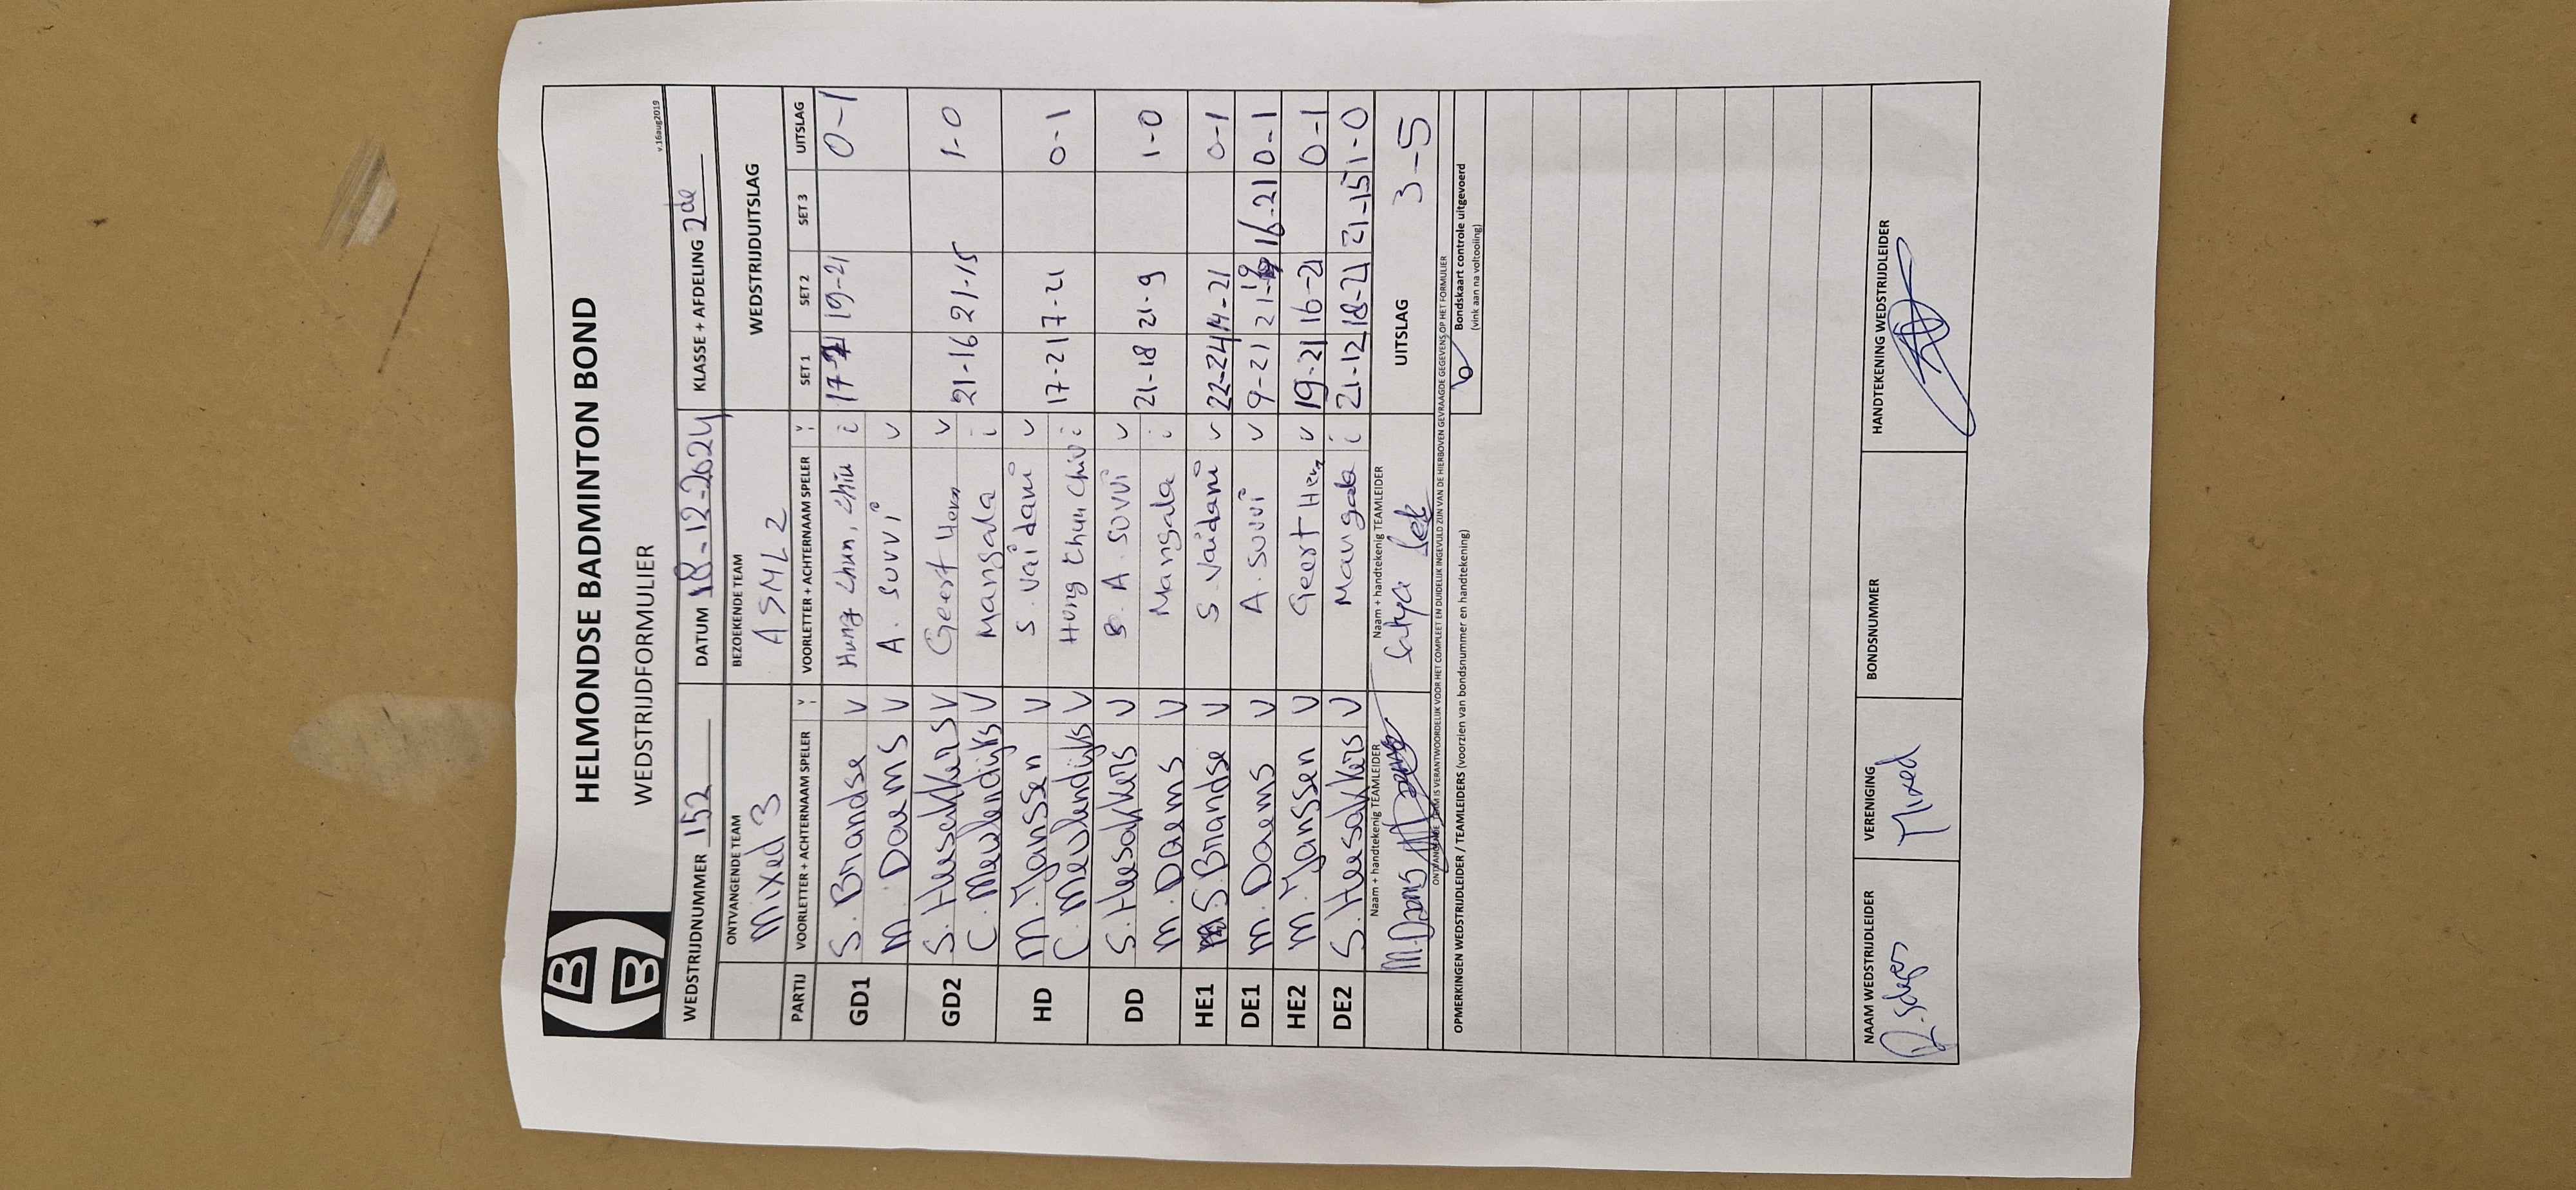 HELMONDSE BADMINTON BOND
WEDSTRIJDFORMULIER
v.16aug2019
WEDSTRIJDNUMMER 152 DATUM 18-12-2024 KLASSE + AFDELING 2de
ONTVANGENDE TEAM BEZOEKENDE TEAM WEDSTRIJDUITSLAG
Mixed 3 ASML 2
PARTIJ VOORLETTER + ACHTERNAAM SPELER V VOORLETTER + ACHTERNAAM SPELER V SET 1 SET 2 SET 3 UITSLAG
GD1 S. Brandse V Hung Chun, Chiu i 17-21 19-21 0-1
M. Daems V A. Suvvi V
GD2 S. Heesakkers V Geert V 21-16 21-15 1-0
C. Meulendijks V Mangala i
HD M. Janssen V S. Vaidani V 17-21 7-21 0-1
C. Meulendijks V Hung Chun Chiu i
DD S. Heesakkers V A. Suvvi V 21-18 21-9 1-0
M. Daems V Mangala i
HE1 S. Brandse V S. Vaidani V 22-24 14-21 0-1
DE1 M. Daems V A. Suvvi V 9-21 21-19 16-21 0-1
HE2 M. Janssen V Geert V 19-21 16-21 0-1
DE2 S. Heesakkers V Mangala i 21-12 18-21 21-15 1-0
Naam + handtekenig TEAMLEIDER Naam + handtekenig TEAMLEIDER UITSLAG 3-5
M. Daems Satya
ONTVANGENDE TEAM IS VERANTWOORDELIJK VOOR HET COMPLEET EN DUIDELIJK INGEVULD ZIJN VAN DE HIERBOVEN GEVRAAGDE GEGEVENS OP HET FORMULIER
OPMERKINGEN WEDSTRIJDLEIDER / TEAMLEIDERS (voorzien van bondsnummer en handtekening) Bondskaart controle uitgevoerd
(vink aan na voltooiing)
NAAM WEDSTRIJDLEIDER VERENIGING BONDSNUMMER HANDTEKENING WEDSTRIJDLEIDER
Mixed